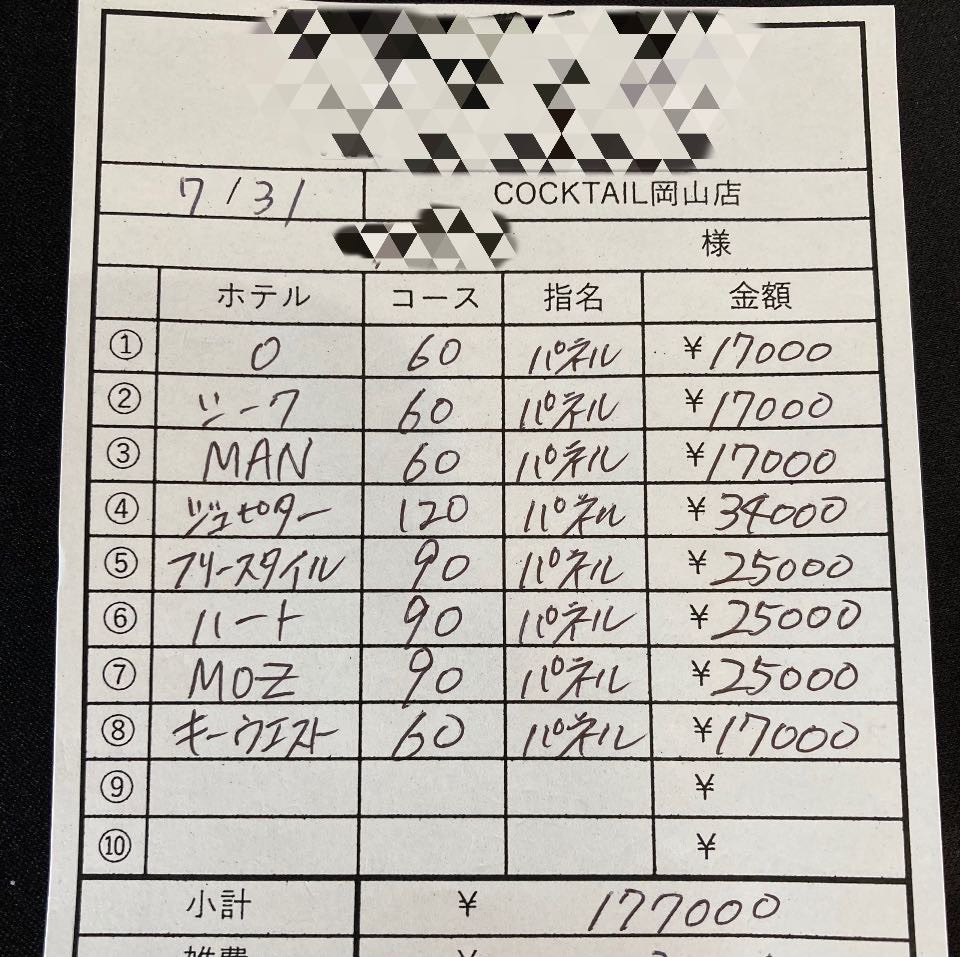 7/31 COCKTAIL岡山店
様
ホテル コース 指名 金額
① O 60 パネル ¥17000
② ジーク 60 パネル ¥17000
③ MAN 60 パネル ¥17000
④ ジュピター 120 パネル ¥34000
⑤ フリースタイル 90 パネル ¥25000
⑥ ハート 90 パネル ¥25000
⑦ MOZ 90 パネル ¥25000
⑧ キーウエスト 60 パネル ¥17000
⑨ ¥
⑩ ¥
小計 ¥ 177000
雑費 ¥